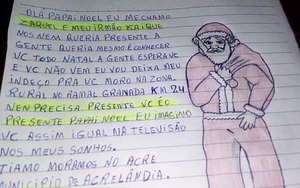 OLÁ PAPAI NOEL EU ME CHAMO
ZAQUEL E MEU IRMÃO KAIQUE
NOS NEM QUERIA PRESENTE A
GENTE QUERIA MESMO É CONHECER
VC TODO NATAL A GENTE ESPERA VC
E VC NÃO VEM EU VOU DEIXA MEU
INDEÇO PRA VC MORO NA ZONA
RURAL NO RAMAL GRANADA KM 24
NEN PRECISA PRESENTE VC É O
PRESENTE PAPAI NOEL EU IMAGINO
VC ASSIM IGUAL NA TELEVISÃO
NOS MEUS SONHOS.
TIAMO MORAMOS NO ACRE
MUNICIPIO DE ACRELÂNDIA.